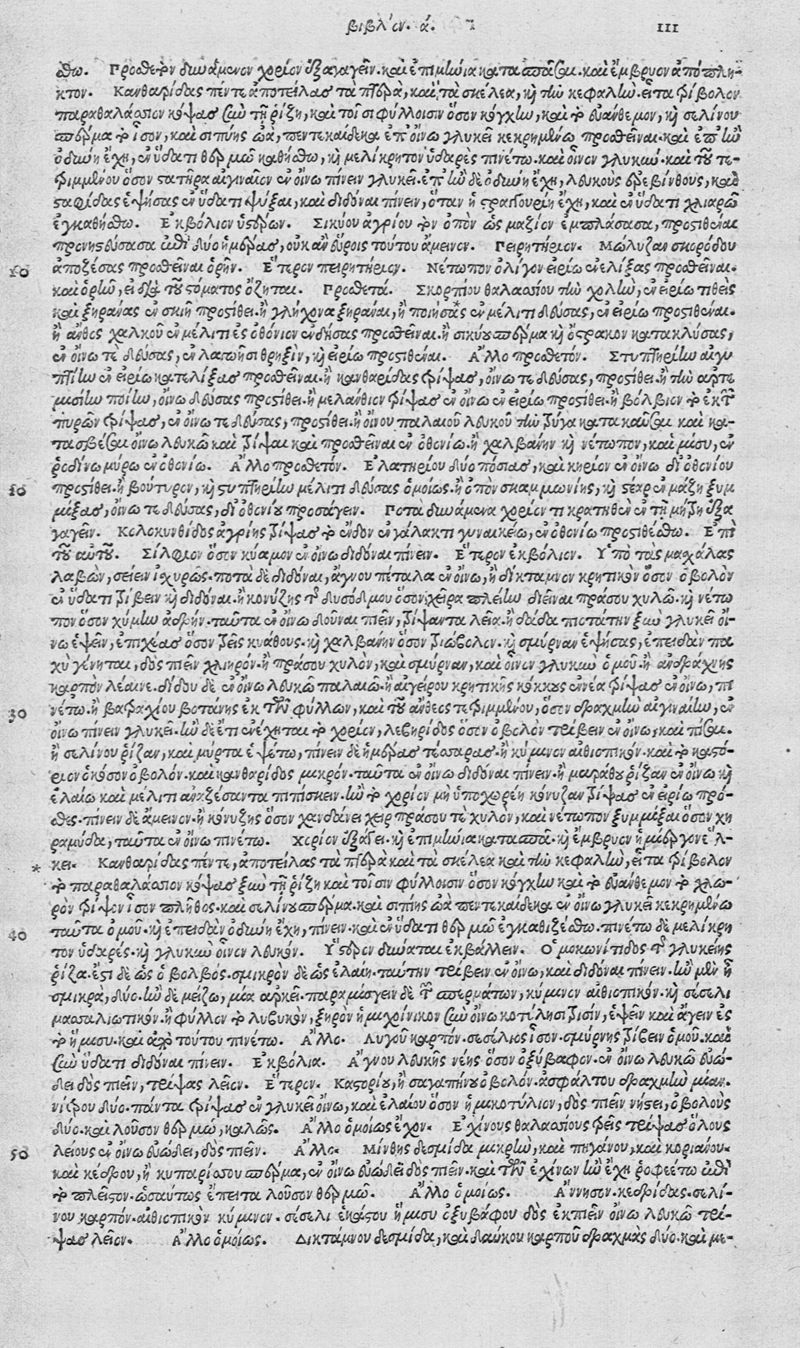 βιβλίον. ά. 111
θω. Προσθετὸν δυνάμενον χορίον ἐξαγαγεῖν. καὶ ἐπιμήνια κατασπᾶσαι. καὶ ἔμβρυον ἀπόπλη-
κτον. Κανθαρίδας πέντε ἀποτείλας τὰ πτερὰ, καὶ τὰ σκέλεα, κὴ τὴν κεφαλήν. εἶτα τρίβολον
παραθαλάσσιον κόψας ξὺν τῇ ῥίζῃ, καὶ τοῖσι φύλλοισιν ὅσον κόγχην, καὶ τὸ βούανθεμον, κὴ σελίνου
σπέρμα τὸ ἴσον, καὶ σηπίης ὠὰ, πεντεκαίδεκα ἐπ' οἴνῳ γλυκεῖ κεκρημένῳ προσθεῖναι. καὶ ἐπὴν
ὀδύνη ἔχῃ, ἐν ὕδατι θερμῷ καθήσθω, κὴ μελίκρητον ὑδαρὲς πινέτω. καὶ οἶνον γλυκὺν. καὶ τοῦ τε-
τριμμένου ὅσον στατῆρα αἰγιναῖον ἐν οἴνῳ πίνειν γλυκεῖ. ἐπὴν δὲ ὀδύνη ἔχῃ, λευκοὺς ἐρεβίνθους, καὶ
σταφίδας ἑψήσας ἐν ὕδατι ψύξαι, καὶ διδόναι πίνειν, ὅταν ἡ στραγγουρίη ἔχῃ, καὶ ἐν ὕδατι χλιαρῷ
ἐγκαθήσθω. Ἐκβόλιον ὑστέρων. Σικύου ἀγρίου τὸν ὀπὸν ὡς μάζιον ἐμπλάσασα, προστιθέναι
προνηστεύσασα ἐπὶ δύο ἡμέρας, οὐκ ἂν εὕροις τούτου ἄμεινον. Πειρητήριον. Μώλυζαν σκορόδου
10 ἀποζέσας προσθεῖναι ὁρῆν. Ἕτερον πειρητήριον. Νέτωπον ὀλίγον εἰρίῳ ἐνελίξας προσθεῖναι.
καὶ ὁρῆν, εἰ διὰ τοῦ στόματος ὄζηται. Προσθετά. Σκορπίου θαλασσίου τὴν χολὴν, ἐν εἰρίῳ τιθεὶς
καὶ ξηράνας ἐν σκιῇ προστίθει. ἢ γλήχονα ξηράναι, ἢ ποιήσας* ἐν μέλιτι δεύσας, ἐν εἰρίῳ προστιθέναι.
ἢ ἄνθος χαλκοῦ ἐν μέλιτι ἐς ὀθόνιον ἐνδήσας προσθεῖναι. ἢ σικύου σπέρμα κὴ ὄστρακον κατακλύσας,
ἐν οἴνῳ τε δεύσας, ἐν λαγωῇσι θριξὶν, κὴ εἰρίῳ προστιθέναι. Ἄλλο προσθετόν. Στυπτηρίην αἰγυ
πτίην ἐν εἰρίῳ κατελίξας προσθεῖναι. ἢ κανθαρίδας τρίψας, οἴνῳ τε δεύσας, προστίθει. ἢ τὴν ἀρτε
μισίην ποίην, οἴνῳ δεύσας προστίθει. ἢ μελάνθιον τρίψας ἐν οἴνῳ ἐν εἰρίῳ προστίθει. ἢ βόλβιον τὸ ἐκ τῶν
πυρῶν τρίψας, ἐν οἴνῳ τε δεύσας, προστίθει. ἢ οἴνου παλαιοῦ λευκοῦ τὴν τρύγα κατακαῦσαι καὶ κα-
τασβέσαι οἴνῳ λευκῷ καὶ τρίψαι καὶ προσθεῖναι ἐν ὀθονίῳ. ἢ χαλβάνην κὴ νέτωπον, καὶ μίσυ, ἐν
ῥοδίνῳ μύρῳ ἐν ὀθονίῳ. Ἄλλο προσθετόν. Ἐλατηρίου δύο πόσιας, καὶ κηρίον ἐν οἴνῳ δι' ὀθονίου
20 προστίθει. ἢ βούτυρον, κὴ στυπτηρίην μέλιτι δεύσας ὁμοίως. ἢ ὀπὸν σκαμμωνίης, κὴ στέαρ ἐν μάζῃ ξυμ
μίξας, οἴνῳ τε δεύσας, δι' ὀθονίου προσάγειν. Ποτὰ δυνάμενα χορίον τι κρατηθὲν ἐν τῇ μήτρῃ ἐξα
γαγεῖν. Κολοκυνθίδος ἀγρίης τρίψας τὸ ἔνδον ἐν γάλακτι γυναικείῳ, ἐν ὀθονίῳ προστιθέσθω. Ἐπὶ
τοῦ αὐτοῦ. Σίλφιον ὅσον κύαμον ἐν οἴνῳ διδόναι πίνειν. Ἕτερον ἐκβόλιον. Ὑπὸ τὰς μασχάλας
λαβὼν, σείειν ἰσχυρῶς. ποτὰ δὲ διδόναι, ἄγνου πέταλα ἐν οἴνῳ, ἢ δίκταμνον κρητικὸν ὅσον ὀβολὸν
ἐν ὕδατι τρίβειν κὴ διδόναι. ἢ κονύζης τῆς δυσόδμου ὅσον χεῖρα πλείην διεῖναι πράσου χυλῷ. κὴ νέτω
πον ὅσον χύμην ἄκρην. ταῦτα ἐν οἴνῳ δοῦναι πιεῖν, τρίψαντα λεῖα. ἢ δᾷδα πιοτάτην ξὺν γλυκεῖ οἴ-
νῳ ἕψειν, ἐπιχέας ὅσον τρεῖς κυάθους. κὴ χαλβάνην ὅσον τριώβολον. κὴ σμύρναν ἑψήσας, ἐπειδὰν πα
χὺ γένηται, δὸς πιεῖν χλιηρόν. ἢ πράσου χυλὸν, καὶ σμύρναν, καὶ οἶνον γλυκὺν ὁμοῦ. ἢ ἀνδράχνης
καρπὸν λέαινε. δίδου δὲ ἐν οἴνῳ λευκῷ παλαιῷ. ἢ αἰγείρου κρητικῆς κόκκους ἐννέα τρίψας ἐν οἴνῳ, πι
30 νέτω. ἢ βατραχίου βοτάνης ἐκ τῶν φύλλων, καὶ τοῦ ἄνθεος τετριμμένου, ὅσον δραχμὴν αἰγιναίην, ἐν
οἴνῳ πίνειν γλυκεῖ. ἢν δὲ ἔτι ἐνέχηται τὸ χορίον, λεβηρίδος ὅσον ὀβολὸν τρίβειν ἐν οἴνῳ, καὶ πῖσαι.
ἢ σελίνου ῥίζαν, καὶ μύρτα ἑψέτω, πίνειν δὲ ἡμέρας τέσσαρας. ἢ κύμινον αἰθιοπικόν. καὶ τὸ καστό-
ριον ὁκόσον ὀβολόν. καὶ κανθαρίδος μικρόν. ταῦτα ἐν οἴνῳ διδόναι πίνειν. ἢ μαράθου ῥίζαν ἐν οἴνῳ κὴ
ἐλαίῳ καὶ μέλιτι ἀναζέσαντα πιπίσκειν. ἢν τὸ χορίον μὴ ὑποχωρέῃ κόνυζαν τρίψας ἐν εἰρίῳ πρό-
θες. πίνειν δὲ ἄμεινον. ἢ κονύζης ὅσον χανδάνει χεὶρ πράσου τε χυλὸν, καὶ νέτωπον ξυμμίξαι ὅσον χη
ραμύδα, ταῦτα ἐν οἴνῳ πινέτω. Χορίον ἐξάγει. κὴ ἐπιμήνια κατασπᾷ. κὴ ἔμβρυον ἡμίεργον ἕλ-
* κει. Κανθαρίδας πέντε, ἀποτείλας τὰ πτερὰ καὶ τὰ σκέλεα καὶ τὴν κεφαλὴν, εἶτα τρίβολον
τὸ παραθαλάσσιον κόψας ξὺν τῇ ῥίζῃ καὶ τοῖσιν φύλλοισιν ὅσον κόγχην καὶ τὸ βούανθεμον τὸ χλω-
ρὸν τρίψον ἴσον πλῆθος. καὶ σελίνου σπέρμα. καὶ σηπίης ὠὰ πεντεκαίδεκα ἐν οἴνῳ γλυκεῖ κεκρημένῳ
40 ταῦτα ὁμοῦ. κὴ ἐπειδὰν ὀδύνη ἔχῃ, πίνειν. καὶ ἐν ὕδατι θερμῷ ἐγκαθιζέσθω. πινέτω δὲ μελίκρη
τον ὑδαρές. κὴ γλυκὺν οἶνον λευκόν. Ὕστερον δύναται ἐκβάλλειν. Ὁμοκωνίτιδος τῆς γλυκείης
ῥίζα. ἔστι δὲ ὡς ὁ βολβὸς. σμικρὸν δὲ ὡς ἐλαίη. ταύτην τρίβειν ἐν οἴνῳ, καὶ διδόναι πίνειν. ἢν μὲν ᾖ
σμικρὰ, δύο. ἢν δὲ μείζω, μία ἀρκεῖ. παραμίσγειν δὲ τῶν σπερμάτων, κύμινον αἰθιοπικόν. κὴ σέσελι
μασσαλιωτικόν. ἢ φύλλον τὸ λιβυκὸν, ξηρὸν ἡμιχοίνικον ξὺν οἴνῳ κοτύλῃσι τρισὶν, ἕψειν καὶ ἄγειν ἐς
τὸ ἥμισυ. καὶ ἀπὸ τούτου πινέτω. Ἄλλο. Λυγοῦ καρπόν. σεσέλιος ἴσον. σμύρνης τρίβειν ὁμοῦ. καὶ
ξὺν ὕδατι διδόναι πίνειν. Ἐκβόλια. Ἄγνου λευκῆς νέης ὅσον ὀξύβαφον. ἐν οἴνῳ λευκῷ εὐώ-
δει δὸς πιεῖν, τρίψας λεῖον. Ἕτερον. Κάστορυ, ἢ σαγαπήνου ὀβολόν. ἀσφάλτου δραχμὴν μίαν.
νίτρου δύο. πάντα τρίψας ἐν γλυκεῖ οἴνῳ, καὶ ἐλαίου ὅσον ἡμικοτύλιον, δὸς πιεῖν νήστει, ὀβολοὺς
δύο. καὶ λοῦσον θερμῷ, καλῶς. Ἄλλο ὁμοίως ἔχον. Ἐχίνους θαλασσίους τρεῖς τρίψας ὅλους
50 λείους ἐν οἴνῳ εὐώδει, δὸς πιεῖν. Ἄλλο. Μίνθης δεσμίδα μικρὴν, καὶ πηγάνου, καὶ κοριάνου.
καὶ κέδρου, ἢ κυπαρίσσου σπέρμα, ἐν οἴνῳ εὐώδει δὸς πιεῖν. καὶ τῶν ἐχίνων ἢν ἔχῃ ῥοφείτω ἐπὶ
τὸ πλεῖστον. ὡσαύτως ἔπειτα λοῦσον θερμῷ. Ἄλλο ὁμοίως. Ἄννησον. κεδρίδας. σελί-
νου καρπόν. αἰθιοπικὸν κύμινον. σέσελι ἑκάστου ἥμισυ ὀξυβάφου δὸς ἐκπιεῖν οἴνῳ λευκῷ τρί-
ψας λεῖον. Ἄλλο ὁμοίως. Δικτάμνου δεσμίδα, καὶ δαύκου καρποῦ δραχμὰς δύο. καὶ με-